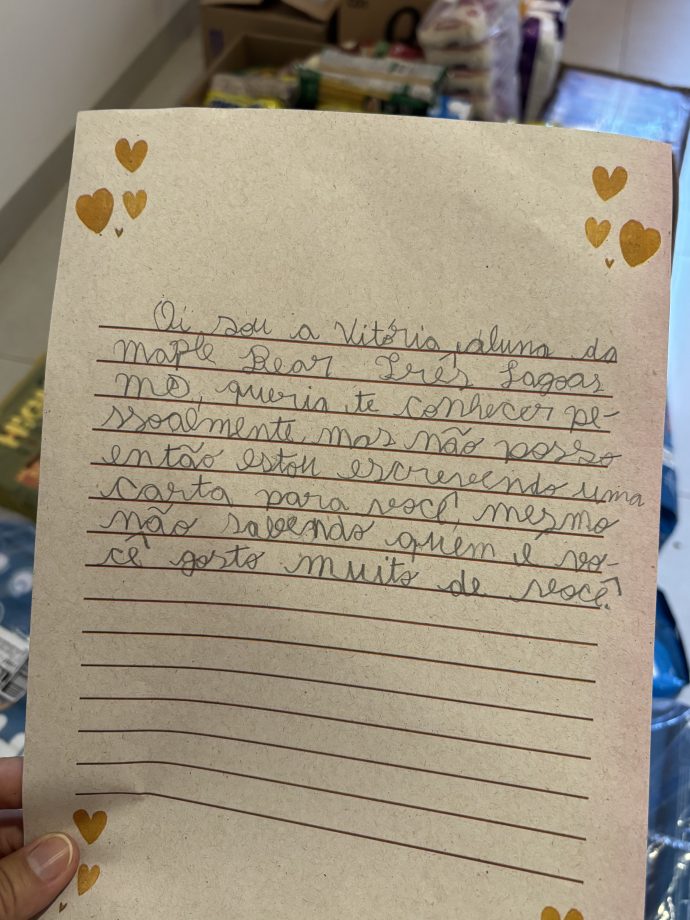 Oi sou a Vitória, aluna da
Maple Bear Três Lagoas
MS, queria te conhecer pe-
ssoalmente, mas não posso
então estou escrevendo uma
carta para você, mesmo
não sabendo quem é vo-
cê gosto muito de você.